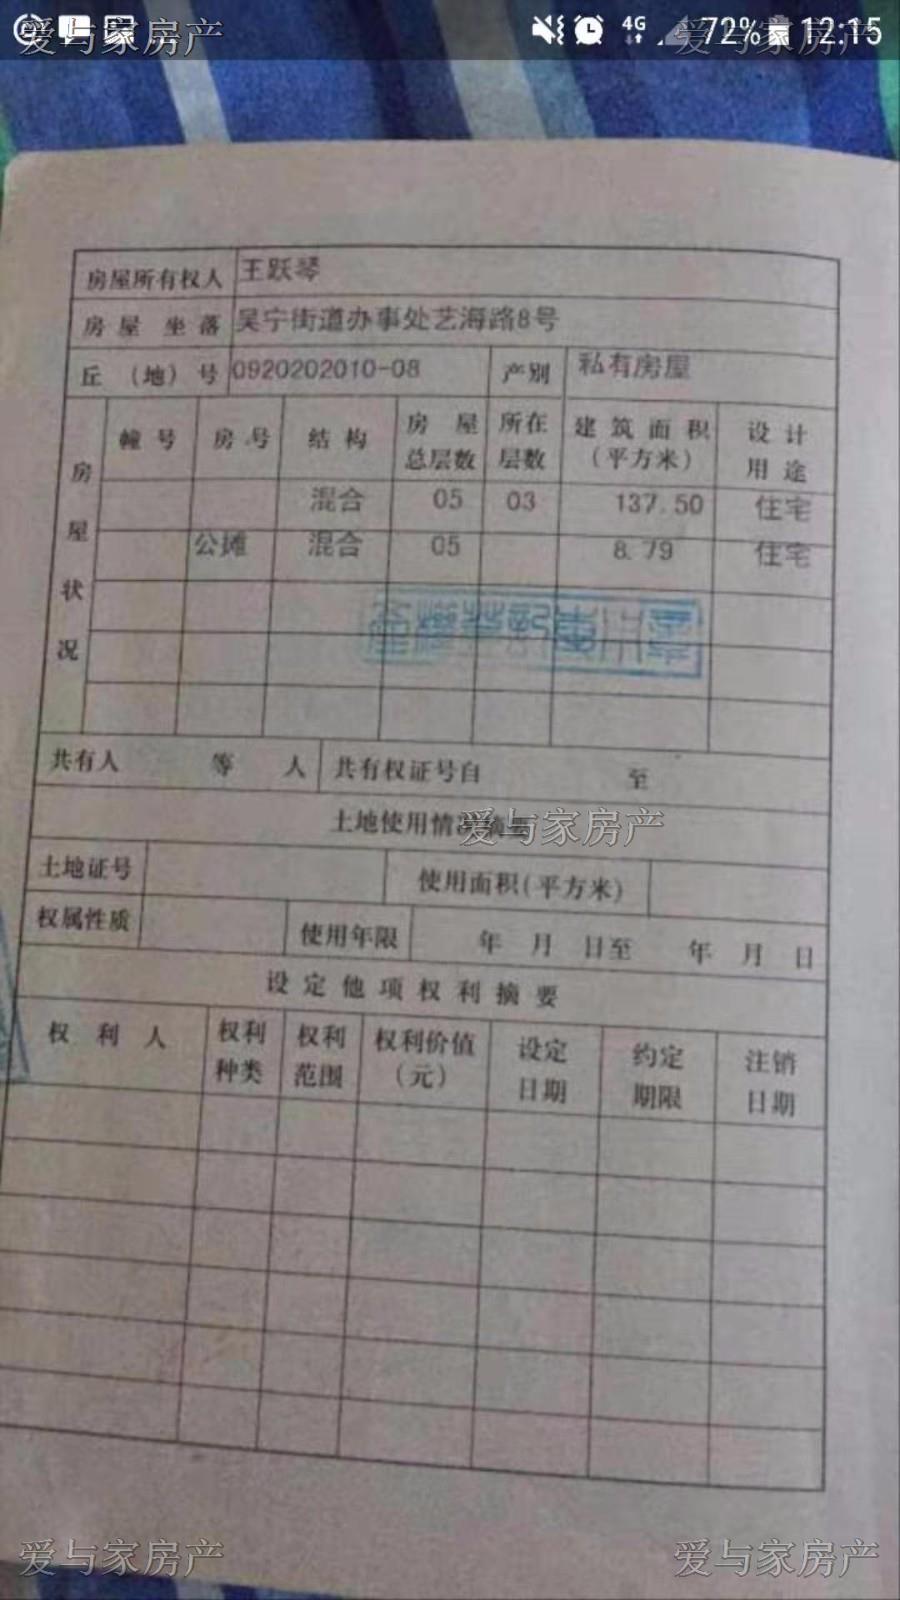 爱与家房产
4G 72% 12:15
爱与家房产
房屋所有权人 王跃琴
房屋坐落 吴宁街道办事处艺海路8号
丘（地）号 0920202010-08 产别 私有房屋
房屋状况
幢号 房号 结构 房屋总层数 所在层数 建筑面积（平方米） 设计用途
混合 05 03 137.50 住宅
公摊 混合 05 8.79 住宅
共有人 等 人 共有权证号自 至
土地使用情况摘要
爱与家房产
土地证号 使用面积（平方米）
权属性质 使用年限 年 月 日至 年 月 日
设定他项权利摘要
权利人 权利种类 权利范围 权利价值（元） 设定日期 约定期限 注销日期
爱与家房产
爱与家房产